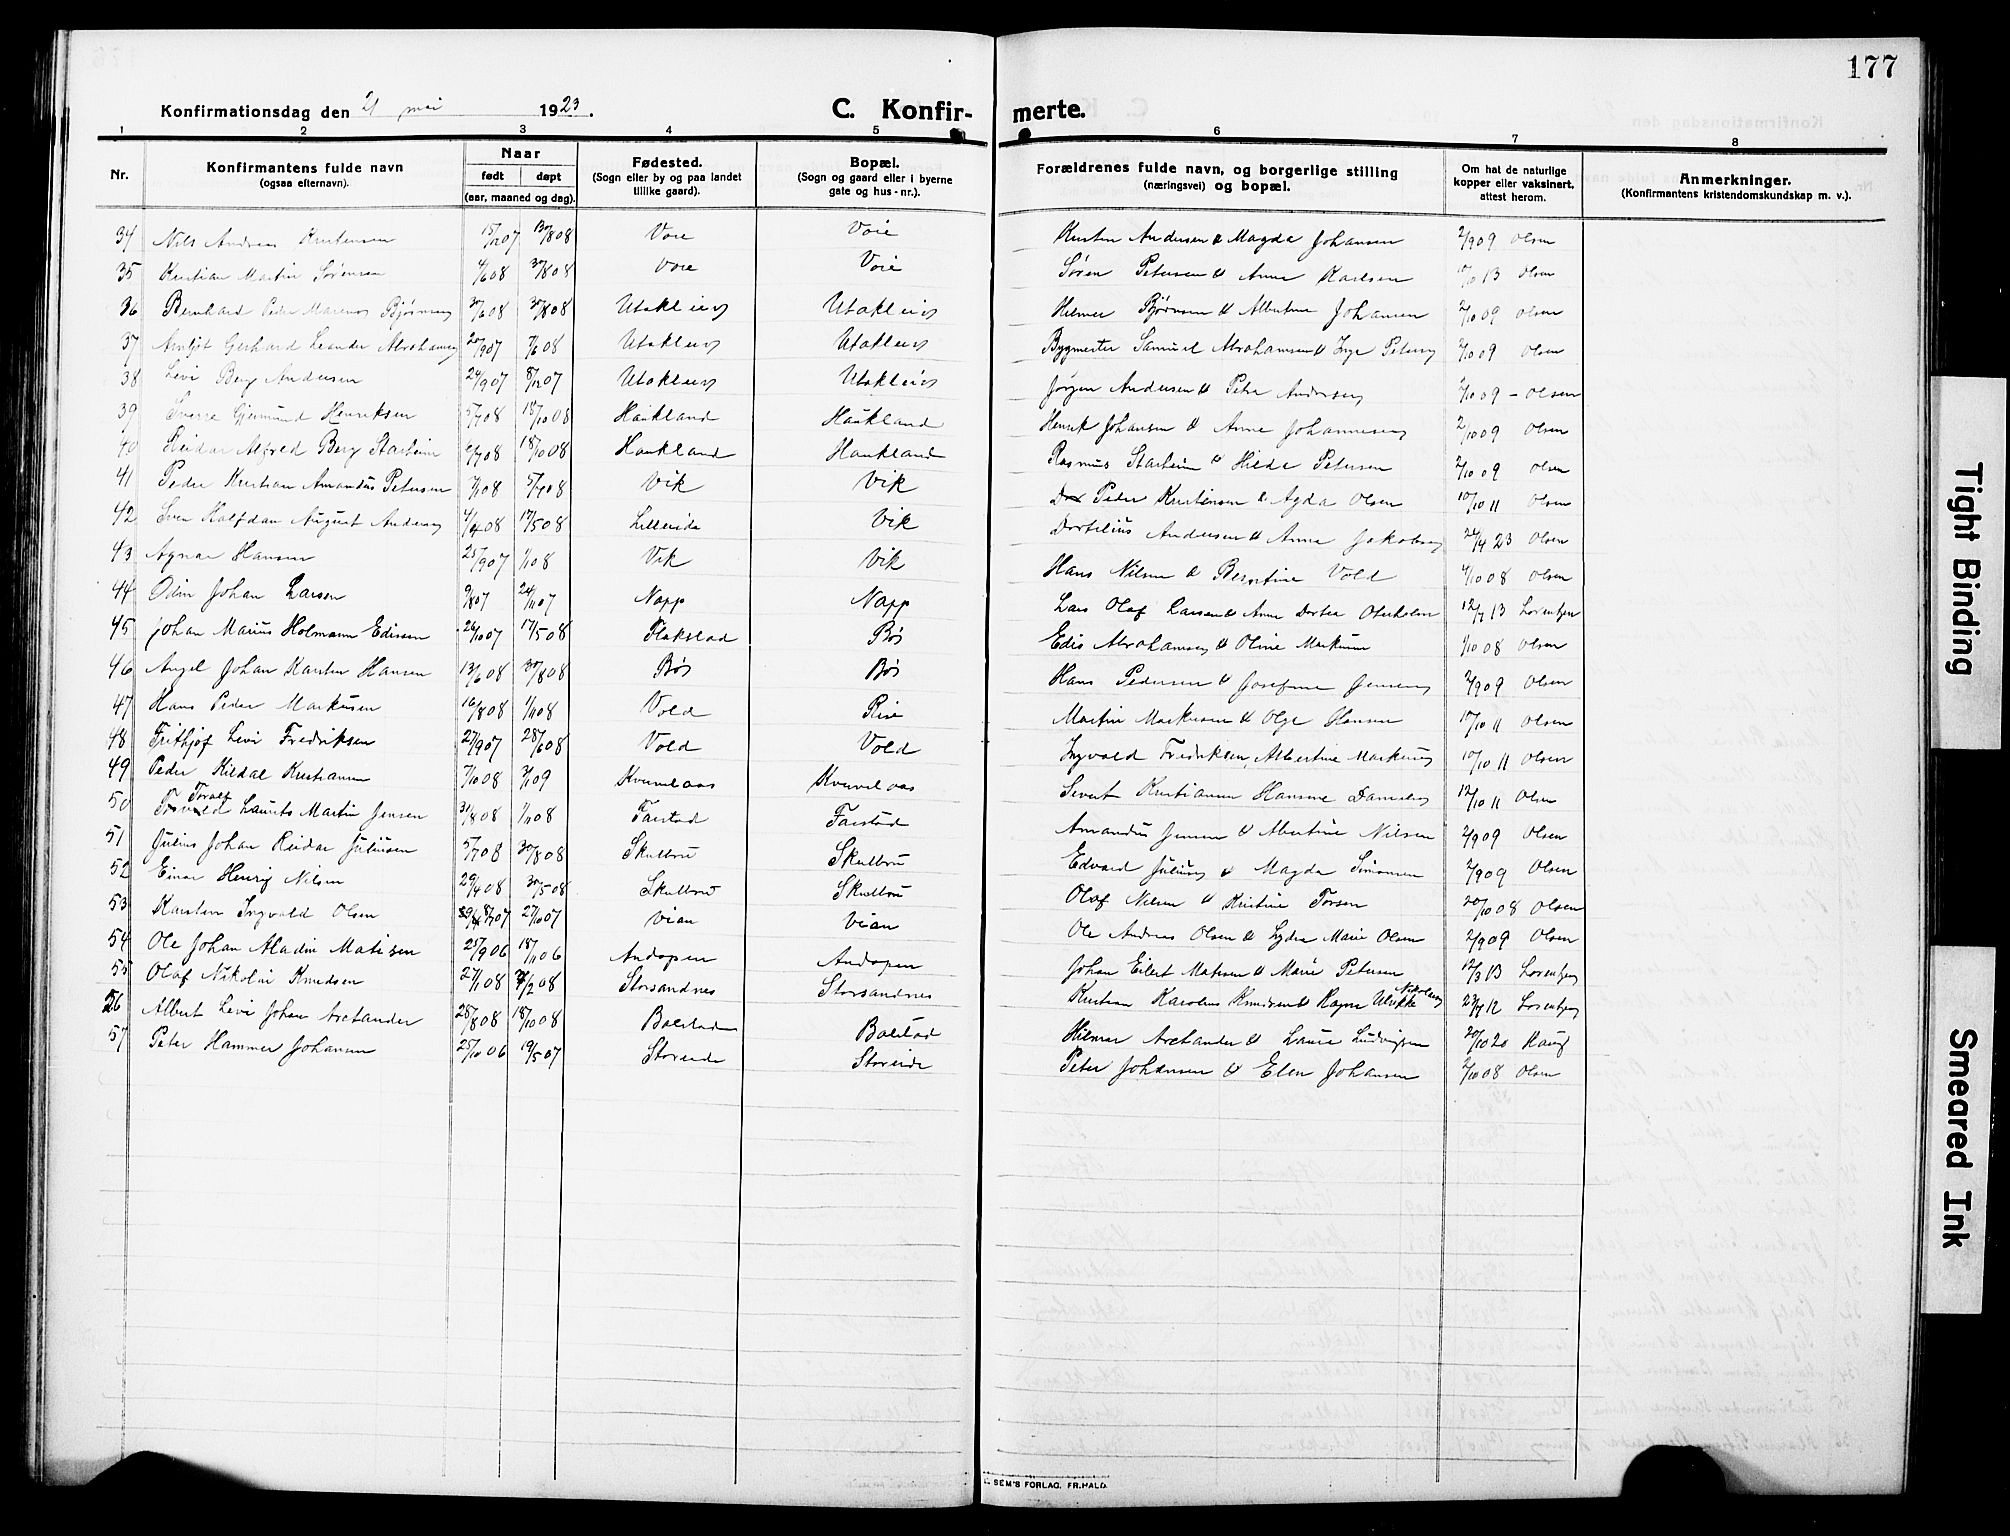 177
Konfirmationsdag den 21 mai 1923.
C. Konfirmerte.
1 2 3 4 5 6 7 8
Nr.
Konfirmantens fulde navn
(ogsaa efternavn).
Naar
født døpt
(aar, maaned og dag).
Fødested.
(Sogn eller by og paa landet
tillike gaard).
Bopæl.
(Sogn og gaard eller i byerne
gate og hus-nr.).
Forældrenes fulde navn, og borgerlige stilling
(næringsvei) og bopæl.
Om hat de naturlige
kopper eller vaksinert,
attest herom.
Anmerkninger.
(Konfirmantens kristendomskundskap m. v.).
34 Nils Andreas Kristensen 15/12 07 30/8 08 Voie Voie Kristen Andersen & Magda Johansen 2/9 09 Olsen
35 Kristian Martin Sørensen 4/6 08 30/8 08 Voie Voie Søren Petersen & Anna Karlsen 10/10 13 Olsen
36 Bernhard Peder Marenus Bjørnsen 30/6 08 30/8 08 Utakleiv Utakleiv Hilmer Bjørnsen & Albertine Johansen 2/10 09 Olsen
37 Arnljot Gerhard Leander Abrahamsen 20/9 07 7/6 08 Utakleiv Utakleiv Bygmester Samuel Abrahamsen & Inga Petersen 2/10 09 Olsen
38 Levi Berg Andersen 24/9 07 8/12 07 Utakleiv Utakleiv Jørgen Andersen & Petra Andersen 2/10 09 - Olsen
39 Sverre Gjermund Henriksen 5/7 08 18/10 08 Haukland Haukland Henrik Johansen & Anna Johannesen 2/10 09 Olsen
40 Reidar Alfred Berg Starheim 6/7 08 18/10 08 Haukland Haukland Rasmus Starheim & Hilda Petersen 2/10 09 Olsen
41 Peder Kristian Amandus Petersen 7/1 08 5/7 08 Vik Vik Peder Kristensen & Agda Olsen 10/10 11 Olsen
42 Sven Halfdan August Andersen 4/4 08 17/5 08 Lilleeide Vik Dortelius Andersen & Anna Jakobsen 24/4 23 Olsen
43 Agnar Hansen 25/9 07 1/1 08 Vik Vik Hans Nilsen & Berntine Vold 4/10 08 Olsen
44 Odin Johan Larsen 9/8 07 24/11 07 Napp Napp Lars Olaf Larsen & Anna Dortea Oterholm 12/7 13 Lorentzen
45 Johan Marius Holmann Edissen 26/10 07 17/5 08 Flakstad Bøs Edis Abrahamsen & Oline Markusen 1/10 08 Olsen
46 Angel Johan Karsten Hansen 13/6 08 30/8 08 Bøs Bøs Hans Pedersen & Josefine Jensen 2/9 09 Olsen
47 Hans Peder Markusen 16/8 08 1/11 08 Vold Rise Martin Markusen & Olga Hansen 10/10 11 Olsen
48 Frithjof Levi Fredriksen 27/9 07 28/6 08 Vold Vold Ingvald Fredriksen, Albertine Markusen 10/10 11 Olsen
49 Peder Kildal Kristiansen 7/10 08 3/1 09 Kvervelaas Kvervelaas Sivert Kristiansen Hansine Danielsen 12/10 11 Olsen
50 Toralf Laurits Martin Jensen 31/8 08 1/11 08 Farstad Farstad Amandus Jensen & Albertine Nilsen 2/9 09 Olsen
51 Julius Johan Reidar Juliusen 5/7 08 30/8 08 Skulbru Skulbru Edvard Juliusen & Magda Simonsen 2/9 09 Olsen
52 Einar Henrig Nilsen 29/4 08 30/5 08 Skulbru Skulbru Olaf Nilsen & Kristine Torsen 20/10 08 Olsen
53 Karsten Ingvald Olsen 8/7 07 27/10 07 Vian Vian Ole Andreas Olsen & Lydia Marie Olsen 2/9 09 Olsen
54 Ole Johan Aladin Matisen 25/9 06 18/11 06 Andopen Andopen Johan Eilert Matisen & Marie Petersen 12/3 13 Lorentzen
55 Olaf Nikolai Knudsen 27/1 08 /2 08 Storsandnes Storsandnes Kristian Karolius Knudsen & Ragna Ulrikke Nikolaisen 23/7 12 Lorentzen
56 Albert Levi Johan Arctander 28/8 08 18/10 08 Bolstad Bolstad Hilmar Arctander & Laura Ludvigsen 20/10 20 Haug
57 Peter Hammer Johansen 25/10 06 19/5 07 Storeide Storeide Peter Johansen & Elen Johansen 2/10 08 Olsen
SEM'S FORLAG, FR.HALD.
Tight Binding
Smeared Ink